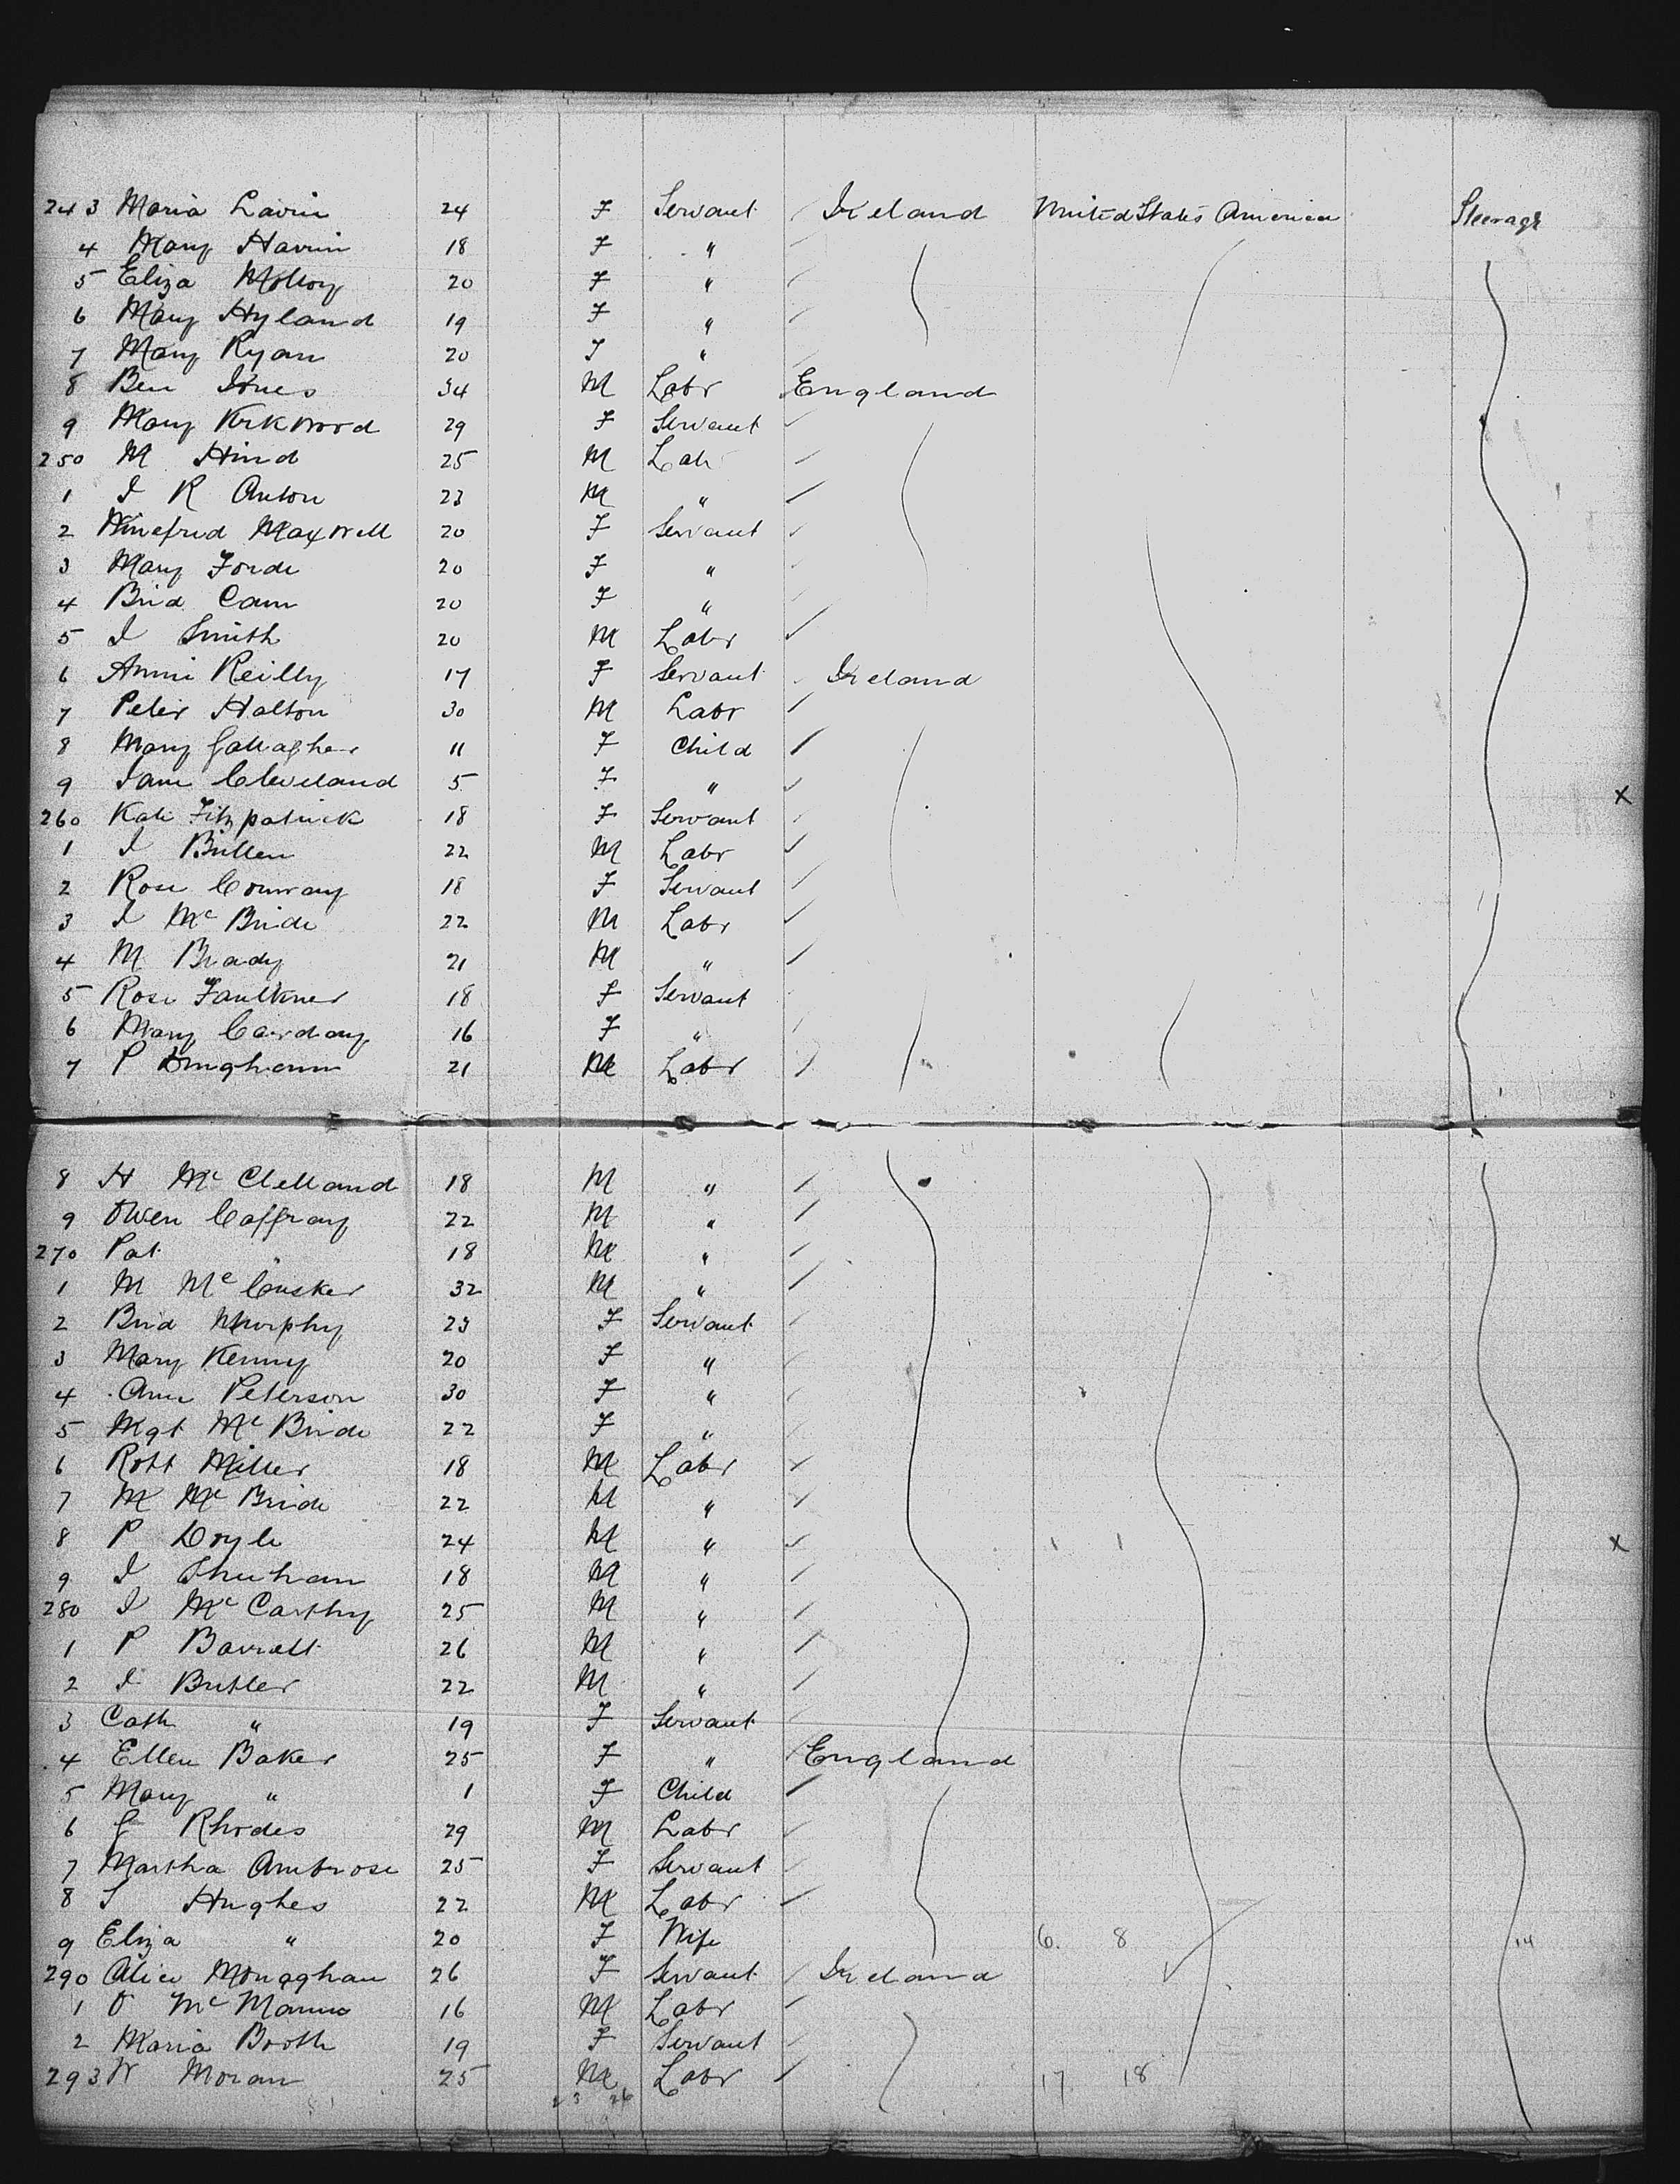 243 Maria Lavin 24 F Servant Ireland United States America Steerage
4 Mary Havrin 18 F "
5 Eliza Molloy 20 F "
6 Mary Hyland 19 F "
7 Mary Ryan 20 F "
8 Ben 34 M Labr England
9 Mary Kirkwood 29 F Servant
250 M Hind 25 M Labr
1 J R Anton 23 M "
2 Winefred Maxwell 20 F Servant
3 Mary Forde 20 F "
4 Brid Cam 20 F "
5 J Smith 20 M Labr
6 Annie Reilly 17 F Servant Ireland
7 Peter Halton 30 M Labr
8 Mary Gallagher 11 F Child
9 Jane Cleveland 5 F " x
260 Kate Fitzpatrick 18 F Servant
1 J Bullen 22 M Labr
2 Rose Conway 18 F Servant
3 J McBride 22 M Labr
4 M Brady 21 M "
5 Rose Faulkner 18 F Servant
6 Mary 16 F "
7 P Bingham 21 M Labr
8 H McClelland 18 M "
9 Owen Caffray 22 M "
270 Pat " 18 M "
1 M McCusker 32 M "
2 Brid Murphy 23 F Servant
3 Mary Kenny 20 F "
4 Ann Peterson 30 F "
5 Mgt McBride 22 F "
6 Robt Miller 18 M Labr
7 M McBride 22 M "
8 P Doyle 24 M " x
9 J 18 M "
280 J McCarthy 25 M "
1 P Barrett 26 M "
2 J Butler 22 M "
3 Cath " 19 F Servant
4 Ellen Baker 25 F " England
5 Mary " 1 F Child
6 G Rhodes 29 M Labr
7 Martha Ambrose 25 F Servant
8 S Hughes 22 M Labr
9 Eliza " 20 F Wife 6. 8 14
290 Alice Monaghan 26 F Servant Ireland
1 O McManus 16 M Labr
2 Maria Booth 19 F Servant
293 W Moran 25 M Labr 17 18
23 26